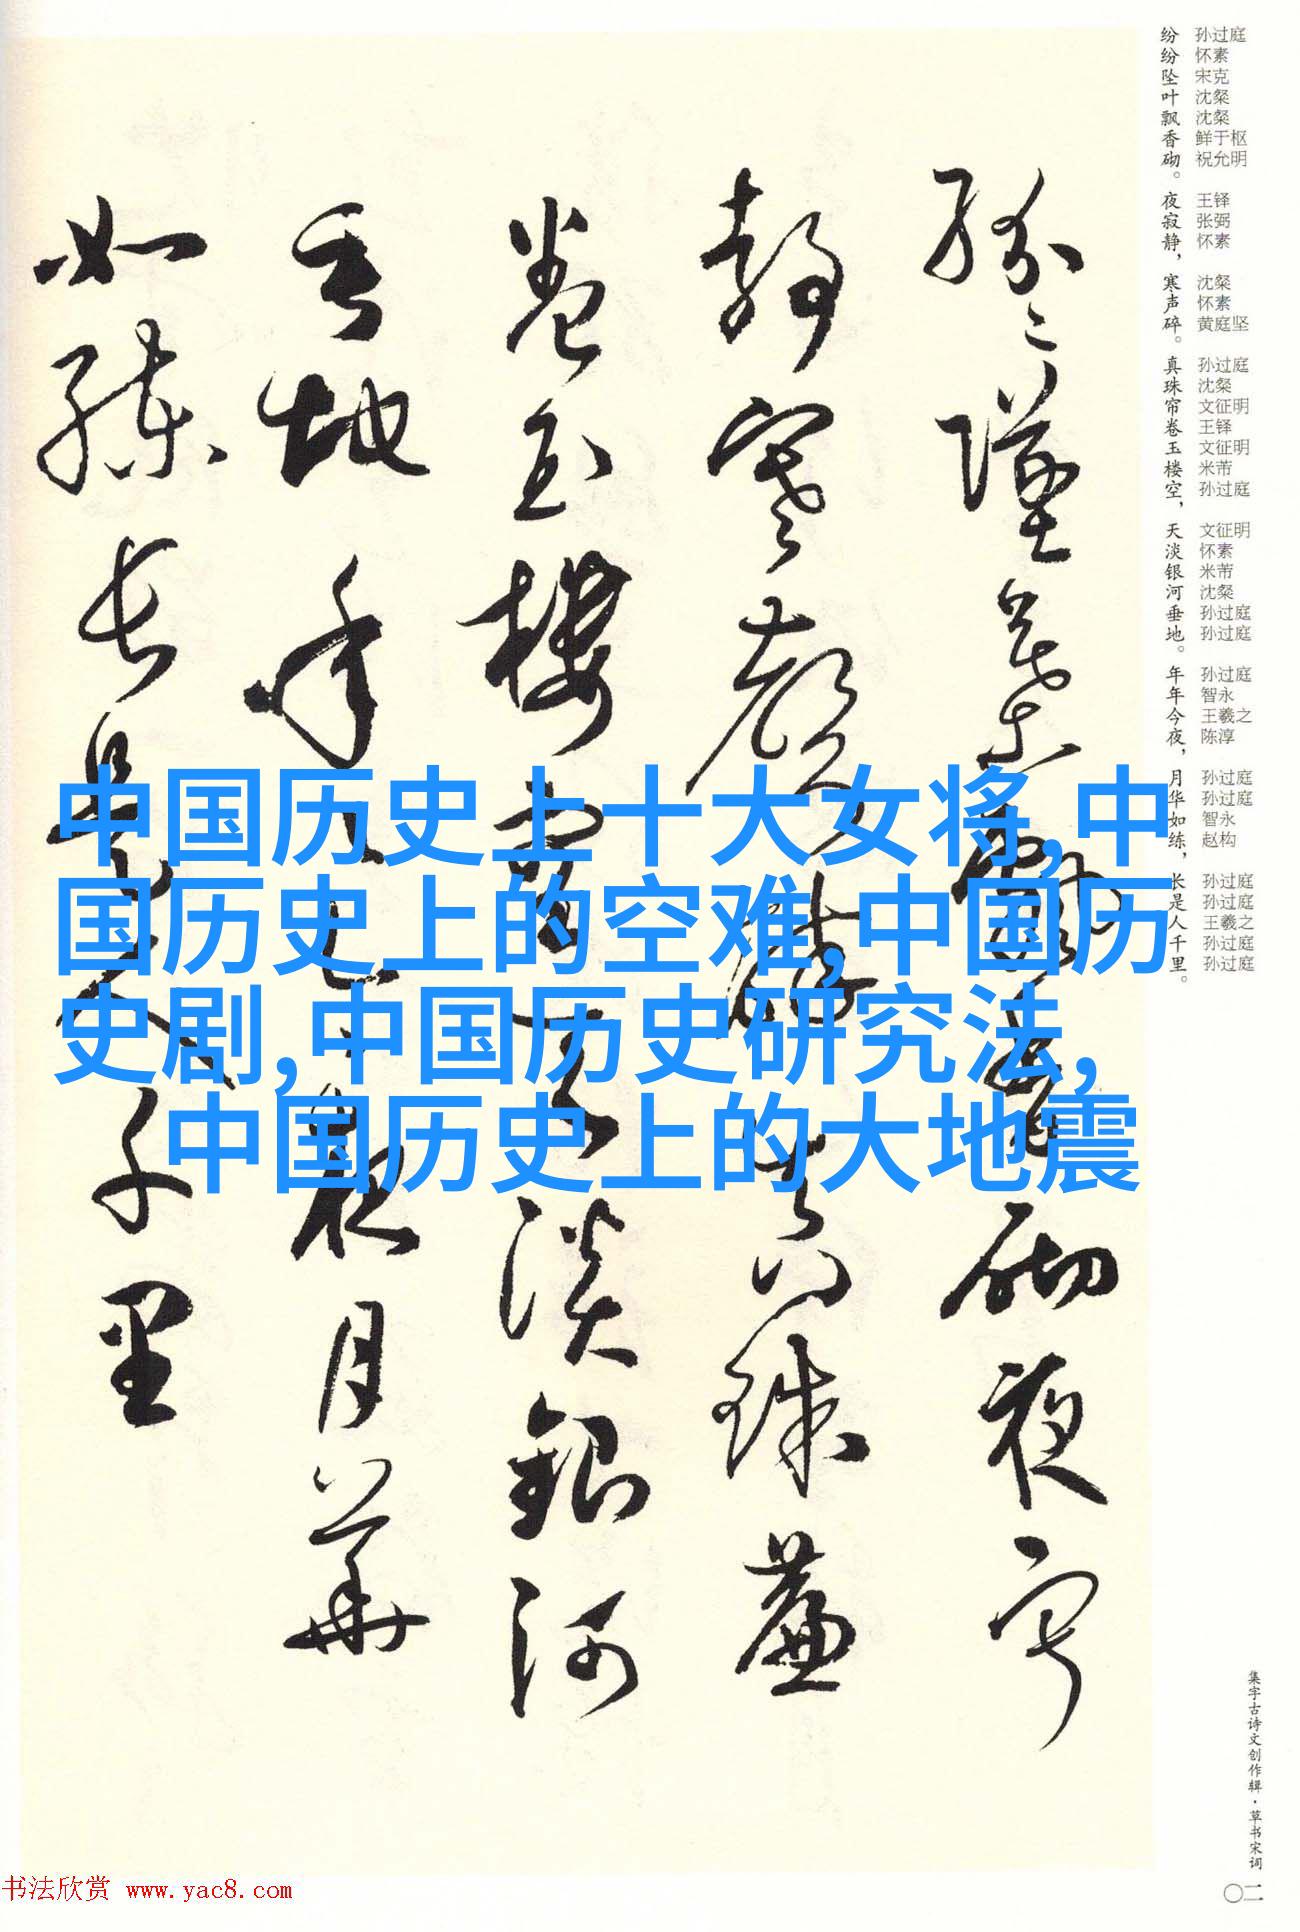 纷纷坠叶飘香砌。夜寂静，寒声碎。真珠帘卷玉楼空，天淡银河垂地。年年今夜，月华如练，长是人千里。
孙过庭
怀素
宋克
沈粲
沈粲
鲜于枢
祝允明
王铎
张弼
怀素
沈粲
怀素
黄庭坚
孙过庭
沈粲
文征明
王铎
文征明
米芾
孙过庭
文征明
怀素
米芾
沈粲
孙过庭
孙过庭
孙过庭
智永
王羲之
陈淳
孙过庭
孙过庭
智永
赵构
孙过庭
孙过庭
王羲之
孙过庭
孙过庭
纷纷坠叶飘香砌夜寂
静寒声碎真珠帘
卷玉楼空天淡银河
垂地年年今夜月华
如练长是人千里
中国历史上十大女将,中
国历史上的空难,中国历
史剧,中国历史研究法,
中国历史上的大地震
集字古诗文创作辑·草书宋词
〇二
书法欣赏 www.yac8.com